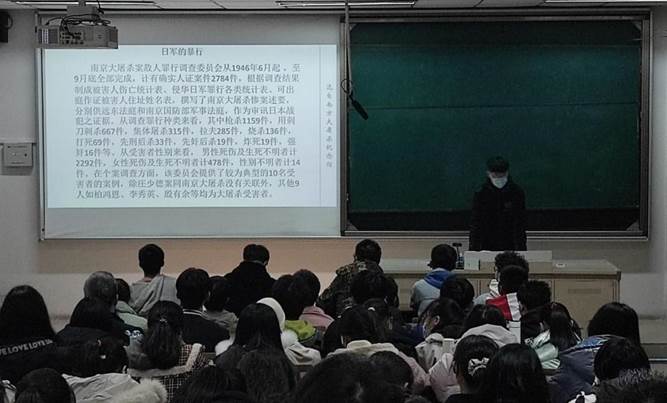 日军的暴行
南京大屠杀案敌人罪行调查委员会从1946年6月起，至
9月底全部完成，计有确实人证案件2784件，根据调查结果
制成被害人伤亡统计表、侵华日军罪行各类统计表、可出
庭作证被害人住址姓名表，撰写了南京大屠杀惨案述要，
分别供远东法庭和南京国防部军事法庭，作为审讯日本战
犯之证据。从调查罪行种类来看，其中枪杀1159件，用刺
刀刺杀667件，集体屠杀315件，拉夫285件，烧杀136件，
打死69件，先刑后杀33件，先奸后杀19件，炸死19件，强
奸16件等。从受害者性别来看，男性死伤及生死不明者计
2292件，女性死伤及生死不明者计478件，性别不明者计14
件，在个案调查方面，该委员会提供了较为典型的10名受
害者的案例，除汪少德案同南京大屠杀没有关联外，其他9
人如柏鸿恩、李秀英、殷有余等均为大屠杀受害者。
南京大屠杀纪念馆
LOVE LOVER